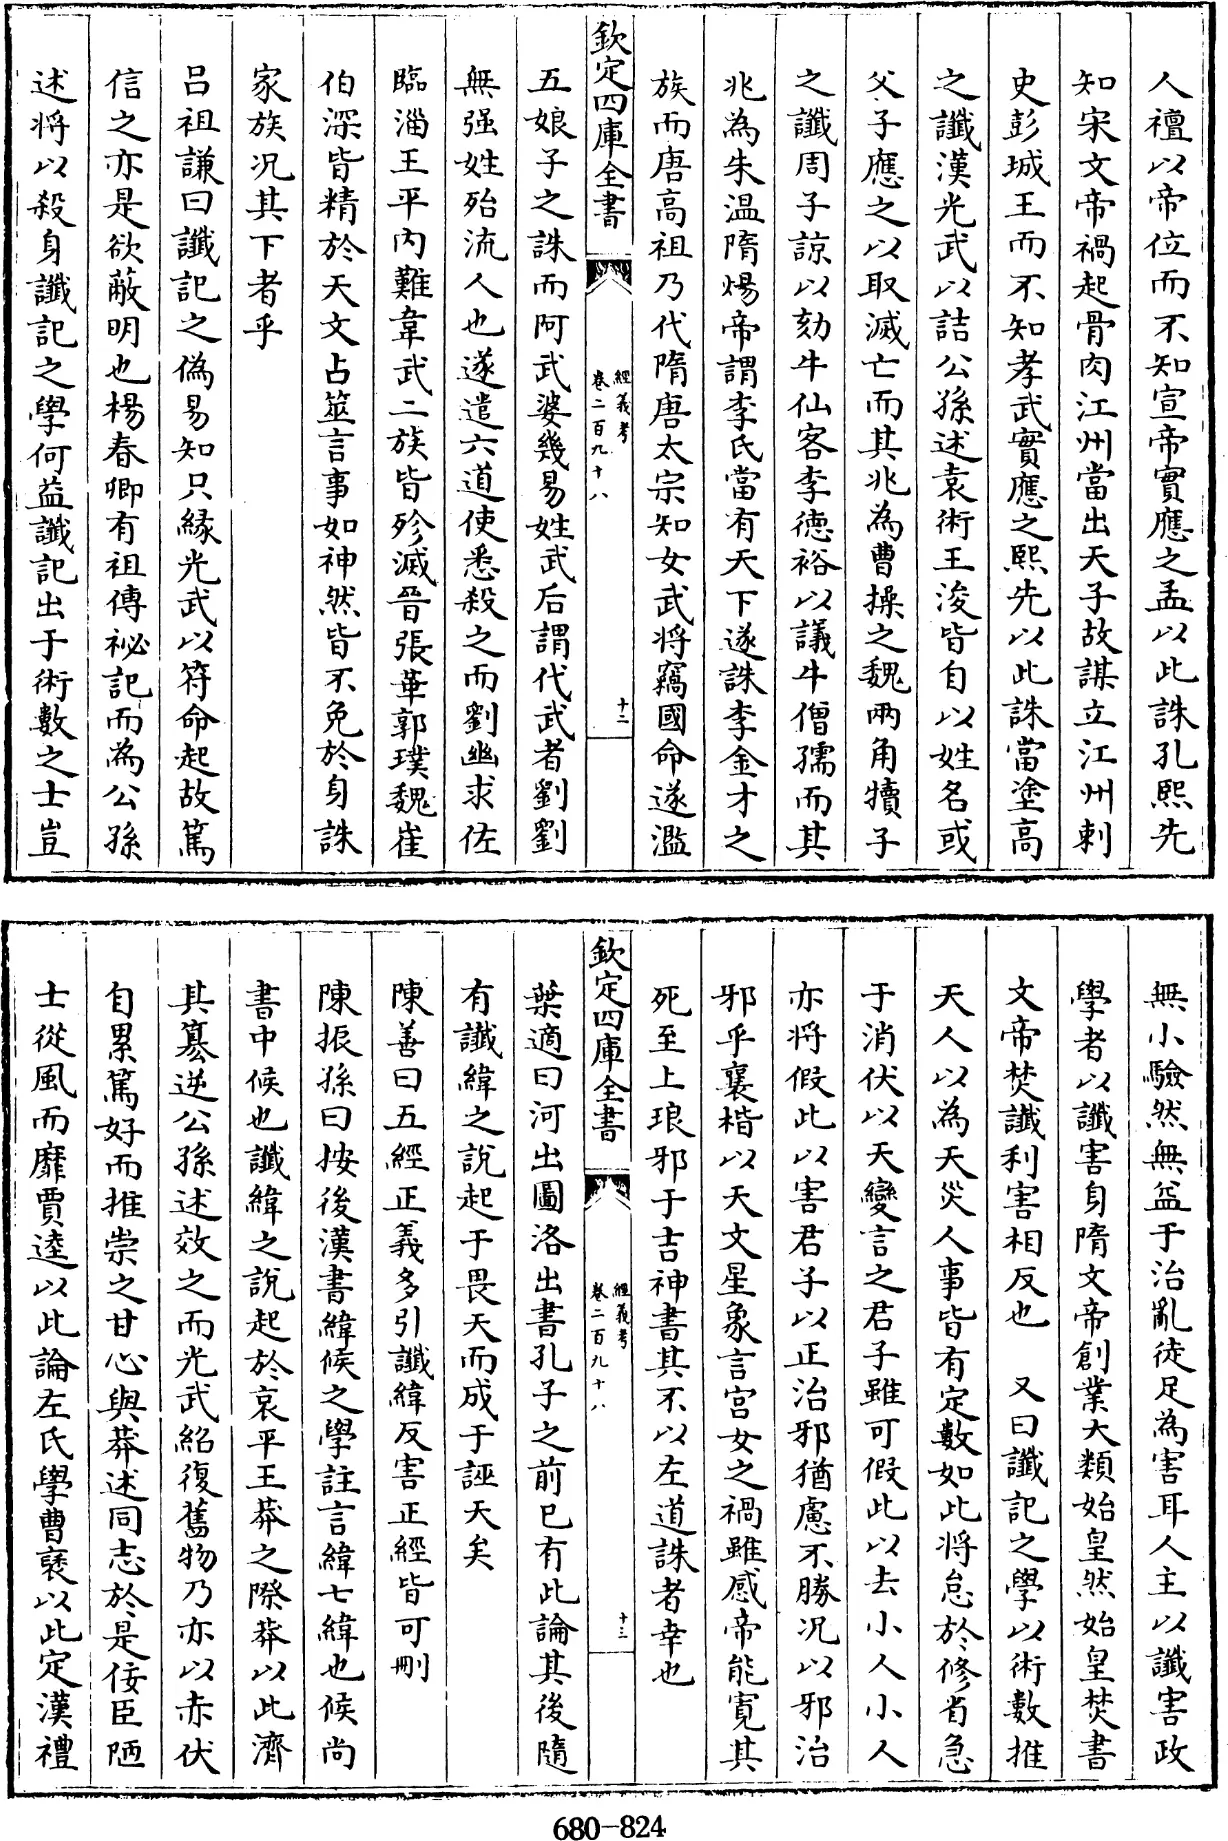 人禮以帝位而不知宣帝實應之孟以此誅孔熙先
知宋文帝禍起骨肉江州當出天子故謀立江州刺
史彭城王而不知孝武實應之熙先以此誅當塗高
之讖漢光武以詰公孫述袁術王浚皆自以姓名或
父子應之以取滅亡而其兆為曹操之魏兩角犢子
之讖周子諒以劾牛仙客李德裕以議牛僧孺而其
兆為朱溫隋煬帝謂李氏當有天下遂誅李金才之
族而唐高祖乃代隋唐太宗知女武將竊國命遂濫
欽定四庫全書
經義考
卷二百九十八
十二
五娘子之誅而阿武婆幾易姓武后謂代武者劉劉
無强姓殆流人也遂遣六道使悉殺之而劉幽求佐
臨淄王平内難韋武二族皆殄滅晉張華郭璞魏崔
伯深皆精於天文占筮言事如神然皆不免於身誅
家族况其下者乎
呂祖謙曰讖記之偽易知只緣光武以符命起故篤
信之亦是欲蔽明也楊春卿有祖傳祕記而為公孫
述將以殺身讖記之學何益讖記出于術數之士豈
無小驗然無益于治亂徒足為害耳人主以讖害政
學者以讖害身隋文帝創業大類始皇然始皇焚書
文帝焚讖利害相反也 又曰讖記之學以術數推
天人以為天災人事皆有定數如此將怠於修省急
于消伏以天變言之君子雖可假此以去小人小人
亦將假此以害君子以正治邪猶慮不勝况以邪治
邪乎襄楷以天文星象言宫女之禍雖感帝能寛其
死至上琅邪于吉神書其不以左道誅者幸也
欽定四庫全書
經義考
卷二百九十八
十三
葉適曰河出圖洛出書孔子之前已有此論其後隨
有讖緯之說起于畏天而成于誣天矣
陳善曰五經正義多引讖緯反害正經皆可刪
陳振孫曰按後漢書緯候之學註言緯七緯也候尚
書中候也讖緯之說起於哀平王莽之際莽以此濟
其簒逆公孫述效之而光武紹復舊物乃亦以赤伏
自累篤好而推崇之甘心與莽述同志於是佞臣陋
士從風而靡賈逵以此論左氏學曹褒以此定漢禮
680-824